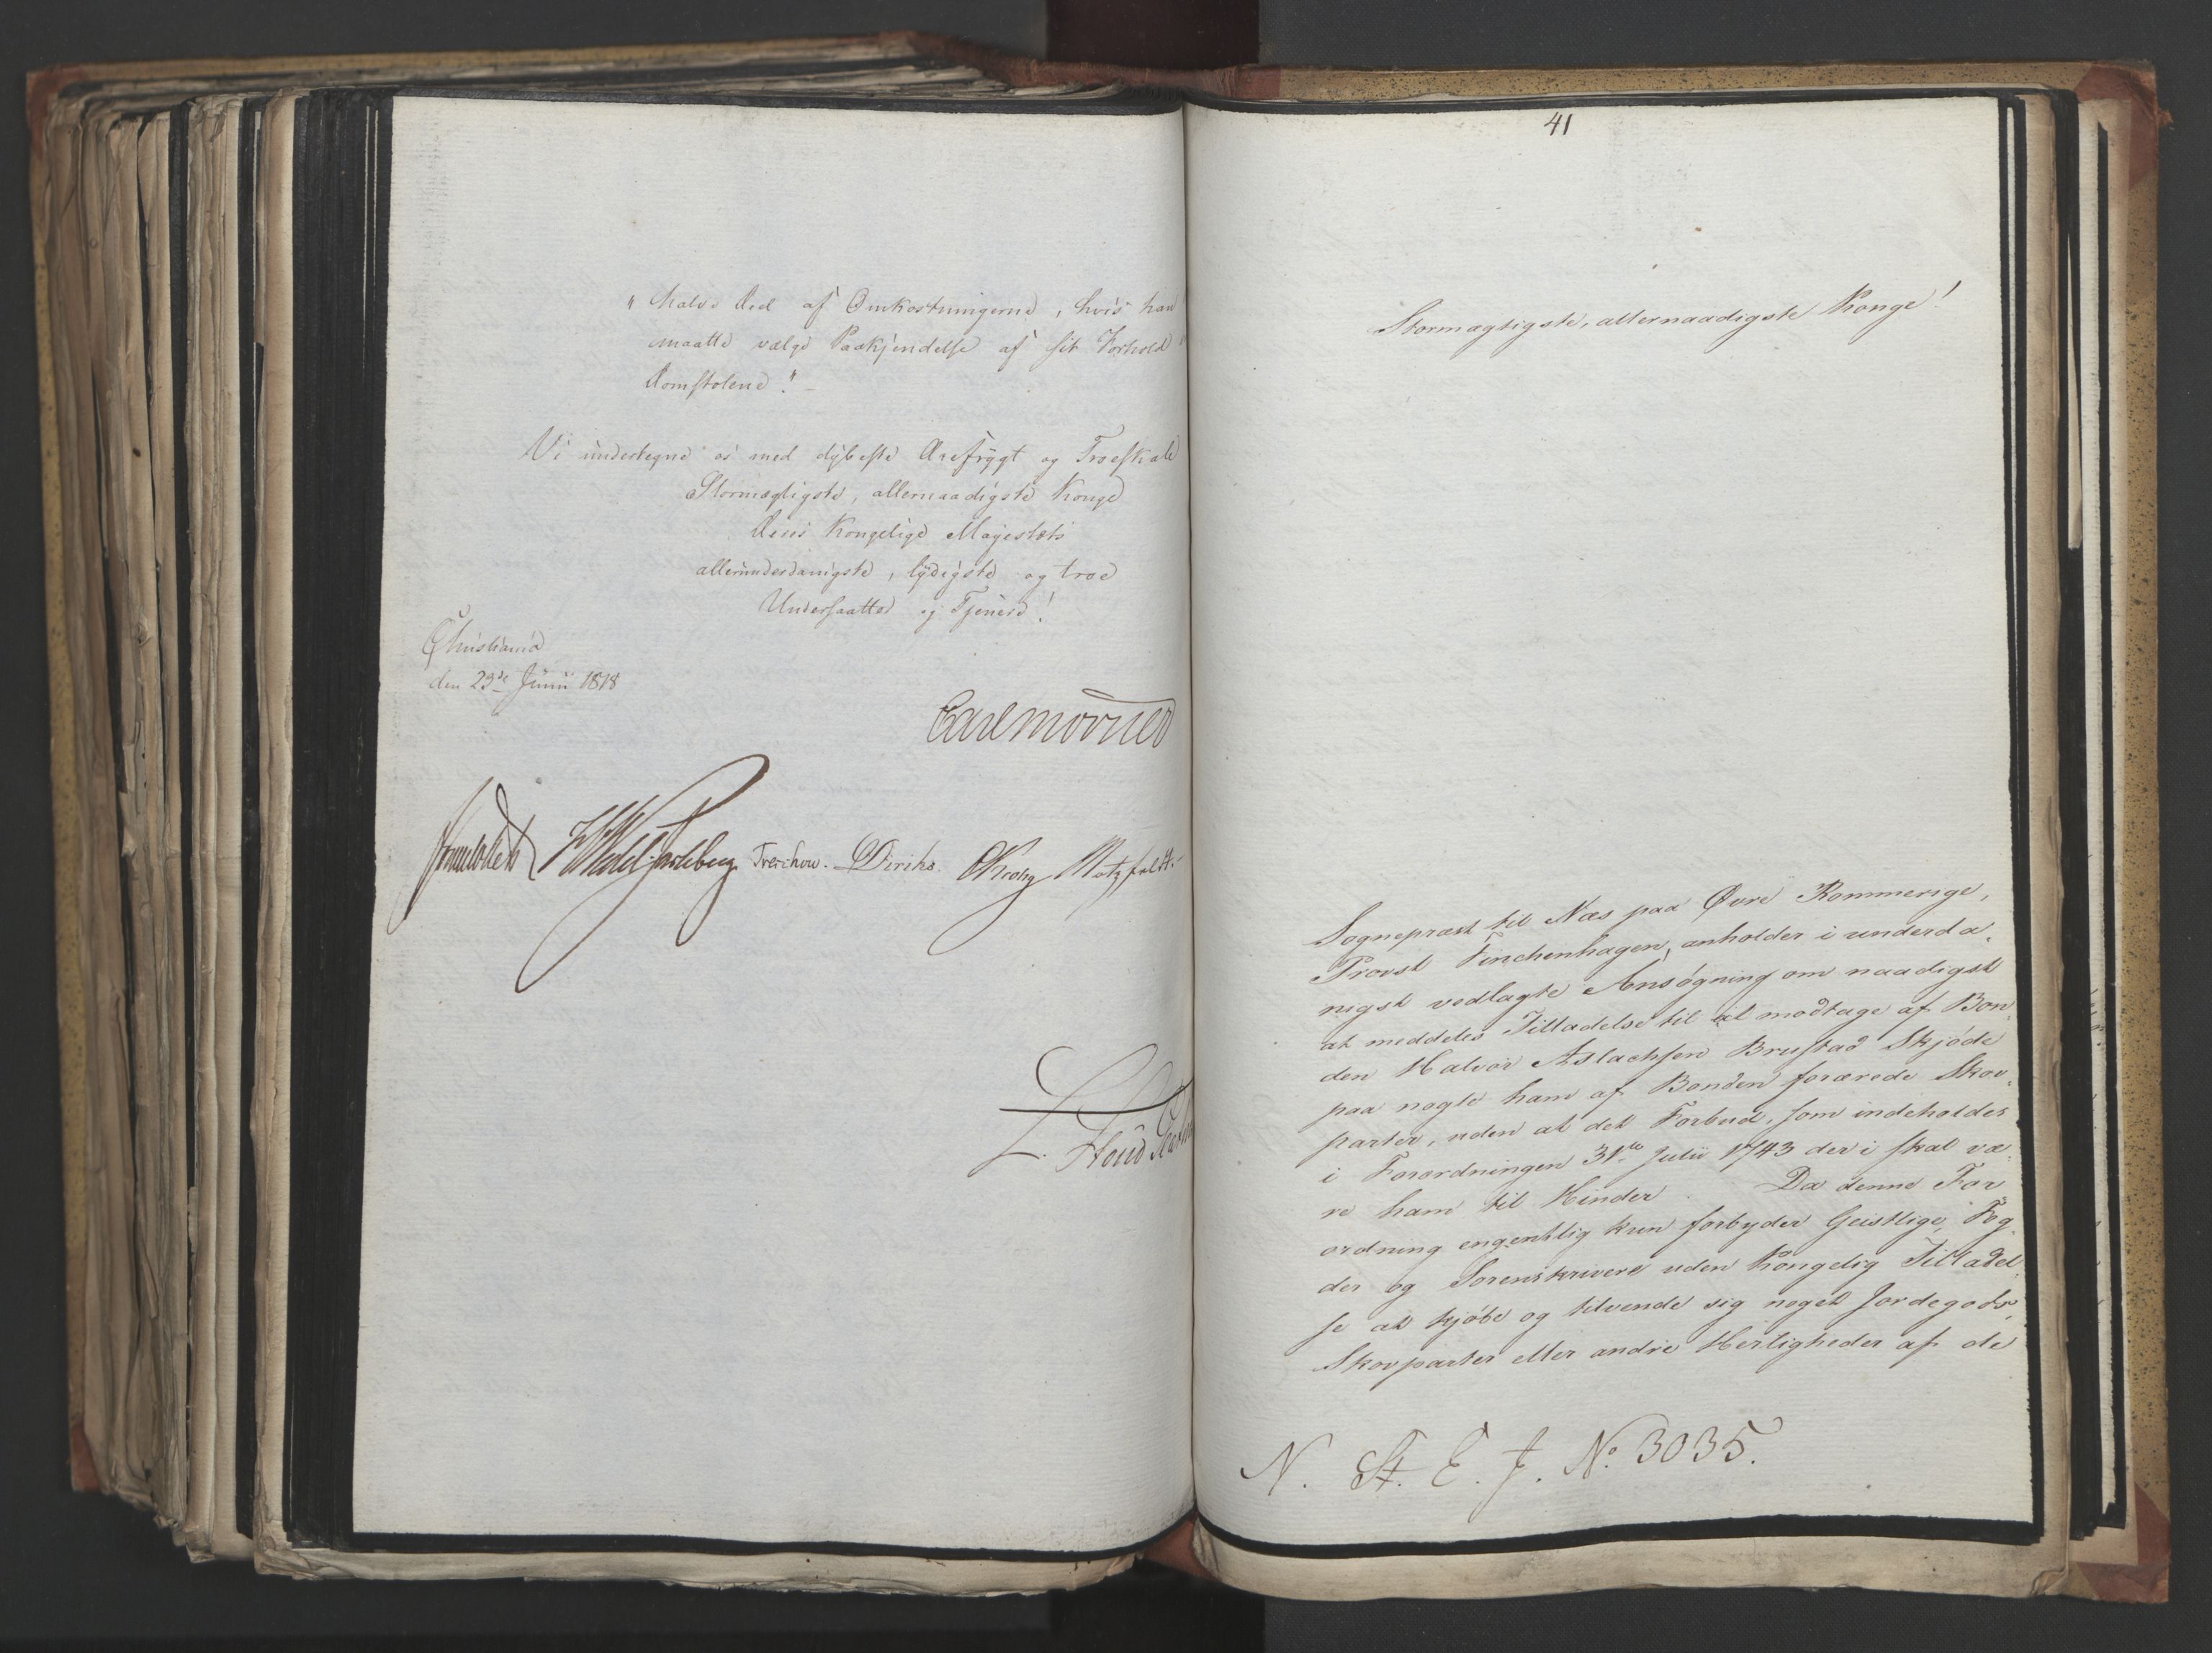 " halve Deel af Omkostningerne, hvis han
maatte vælge Paakjendelse af sit Forhold
Domstolene". -
Vi undertegne os med dybeste Ærefrygt og Troeskab
Stormægtigste, allernaadigste Konge
Deres Kongelige Majestæts
allerunderdanigste, lydigste og troe
Undersaatter og Tjenere!
Christiania
den 23de Junii 1818
Carl Mörner
Sommerhielm HWedel Jarlsberg Treschow. Diriks. CKrohg Motzfeldt.
L.
41
Stormægtigste, allernaadigste Konge!
Sognepræst til Næs paa Øvre Rommerige,
Provst Finchenhagen, anholder i underda-
nigst vedlagte Ansøgning om naadigst
at meddeles Tilladelse til at modtage af Bon-
den Halvor Aslachsen Brustad Skjøde
paa nogle ham af Bonden forærede Skov-
parter, uden at det Forbud, som indeholdes
i Forordningen 31te Julii 1743 deri skal væ-
re ham til Hinder. Da denne For
ordning engentlig kun forbyder Geistlige, Fog-
der og Sorenskrivere uden Kongelig Tilladel-
se at kjøbe og tilvende sig noget Jordegods,
Skovparter eller andre Herligheder af de
N. St. E. J. No 3035.